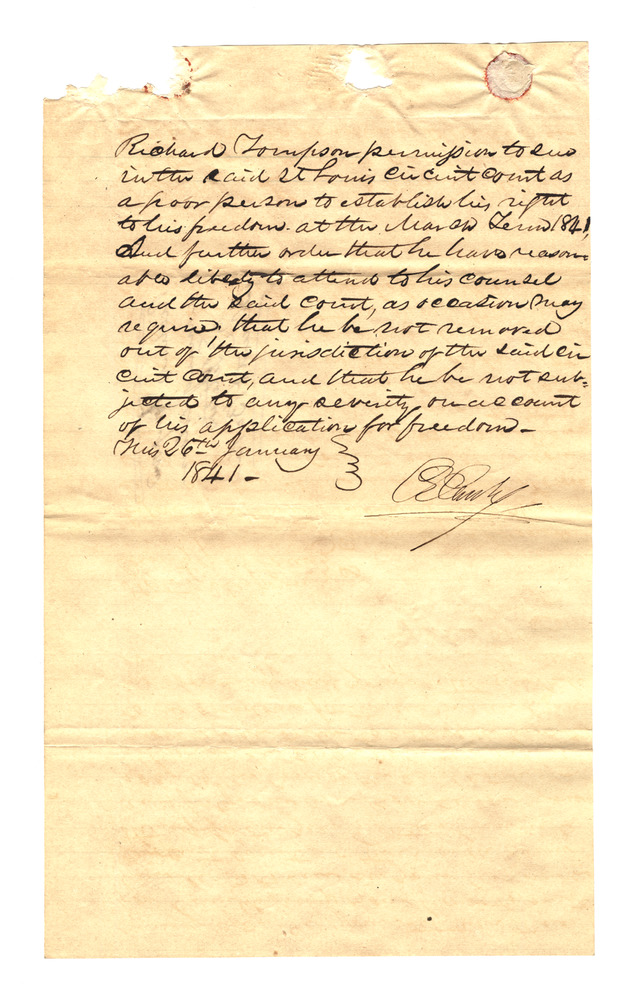 Richard Tompson permission to sue
in the said St Louis Circuit Court as
a poor person to establish his right
to his freedom. at the March Term 1841,
And further order that he have reason=
able liberty to attend to his counsel
and the said court, as occasion may
require that he be not removed
out of the jurisdiction of the said cir
cuit court, and that he be not sub=
jected to any severity on account
of his application for freedom –
This 26th January
1841 –